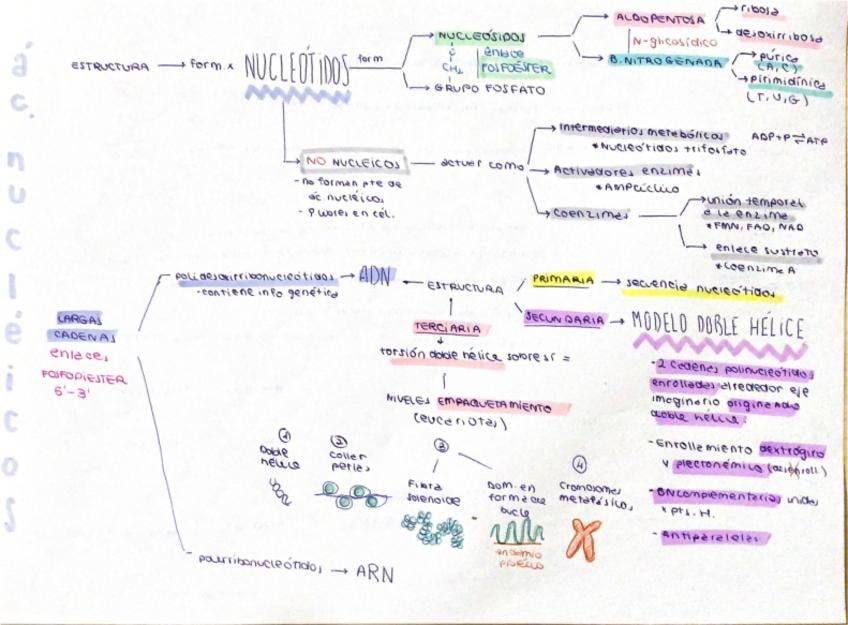 ác. nucléicos
ESTRUCTURA → form. x NUCLEÓTIDOS form
NUCLEÓSIDOS
C
C
CH₂
enlace
FOSFOÉSTER
GRUPO FOSFATO
ALDOPENTOSA
N-glicosídico
B. NITROGENADA
ribosa
desoxirribosa
púrica
pirimidínica
(T, U, G)
NO NUCLEICOS
- no forman pte de
ác nucleicos.
en cél.
actuar como
Intermediarios metabólicos
*Nucleótidos trifosfato
ADP+P ⇄ ATP
Activadores enzimas
*AMP cíclico
Coenzimas
unión temporal
a la enzima
*FMN, FAD, NAD
enlace sustrato
*Coenzima A
CARGAS
CADENAS
enlaces
FOSFODIESTER
5'-3'
polidesoxirribonucleótidos → ADN
- contiene info genética
ESTRUCTURA
PRIMARIA → secuencia nucleótidos
SECUNDARIA → MODELO DOBLE HÉLICE
TERCIARIA
torsión doble hélice sobre sí =
NIVELES EMPAQUETAMIENTO
(eucariotas)
① Doble
hélice
② Collar
perlas
③
Fibra
solenoide
Dom. en
forma de
bucle
andamio
proteico
④
Cromosomas
metafásicos
- 2 Cadenas polinucleótidos
enrolladas alrededor eje
imaginario originando
doble hélice.
- Enrollamiento dextrógiro
y plectonémico
- BN complementarias unidas
x pts. H.
- Antiparalelas
poliribonucleótidos → ARN